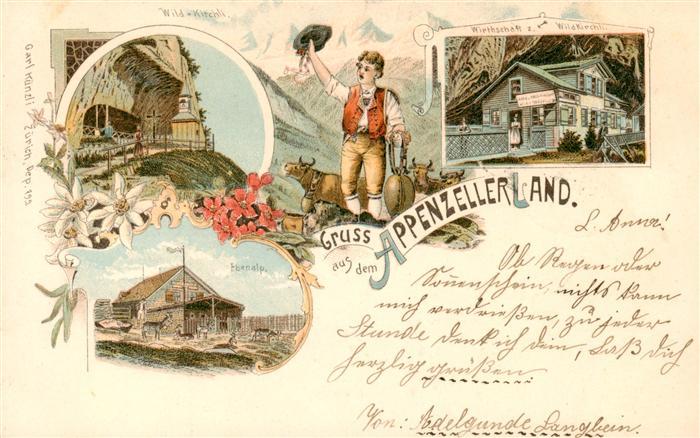 Wild-Kirchli.
Wirthschaft z. Wildkirchli.
Carl Künzli Zürich, Dep. 193
Gruss
aus dem
APPENZELLERLAND.
Ebenalp.
L. Anna!
Ob Regen oder
Sonnenschein, nichts kann
mich verdrießen, zu jeder
Stunde denk ich dein, laß dich
herzlig grüßen
Von: Adelgunde Langbein.